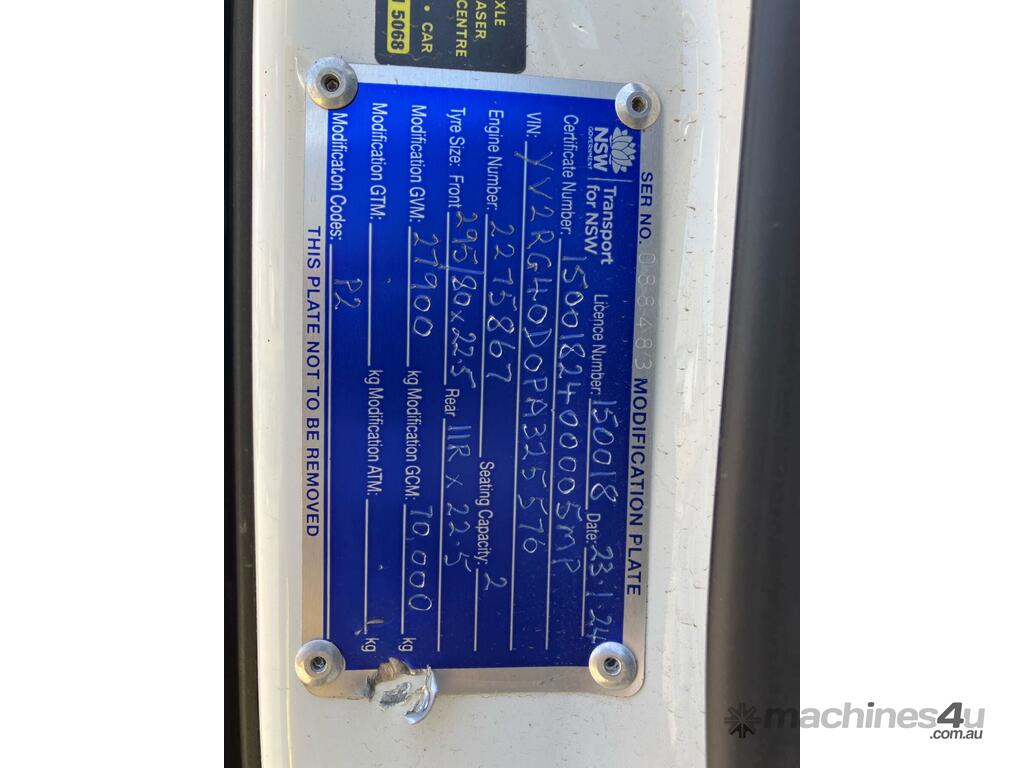 XLE
ASER
CENTRE
• CAR
5068
SER NO. 088483 MODIFICATION PLATE
NSW GOVERNMENT
Transport for NSW
Licence Number: 150018 Date: 23.1.24
Certificate Number: 1500182400005MP
VIN: YV2RG40D0PA325576
Engine Number: 2275867 Seating Capacity: 2
Tyre Size: Front 295/80x22.5 Rear 11R x 22.5
Modification GVM: 27900 kg Modification GCM: 70,000 kg
Modification GTM: kg Modification ATM: kg
Modification Codes: P2
THIS PLATE NOT TO BE REMOVED
machines4u
.com.au